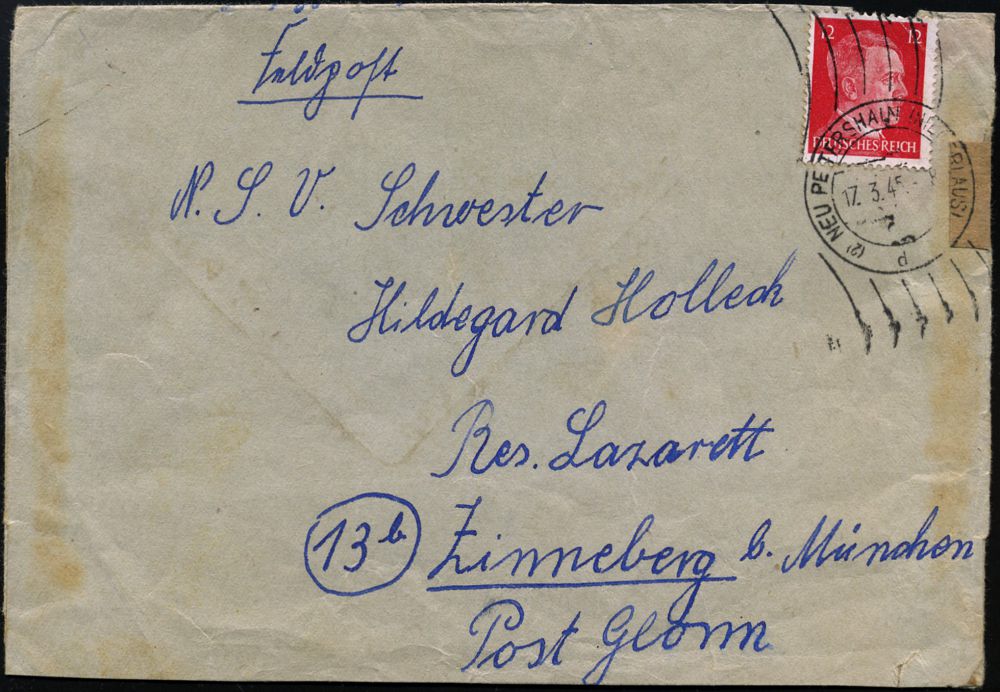 Feldpost
12 12
DEUTSCHES REICH
(2) NEU PETERSHAIN (NIEDERLAUS)
17. 3. 45
d
N. S. V. Schwester
Hildegard Holleck
Res. Lazarett
13b Zinneberg b. München
Post Glonn